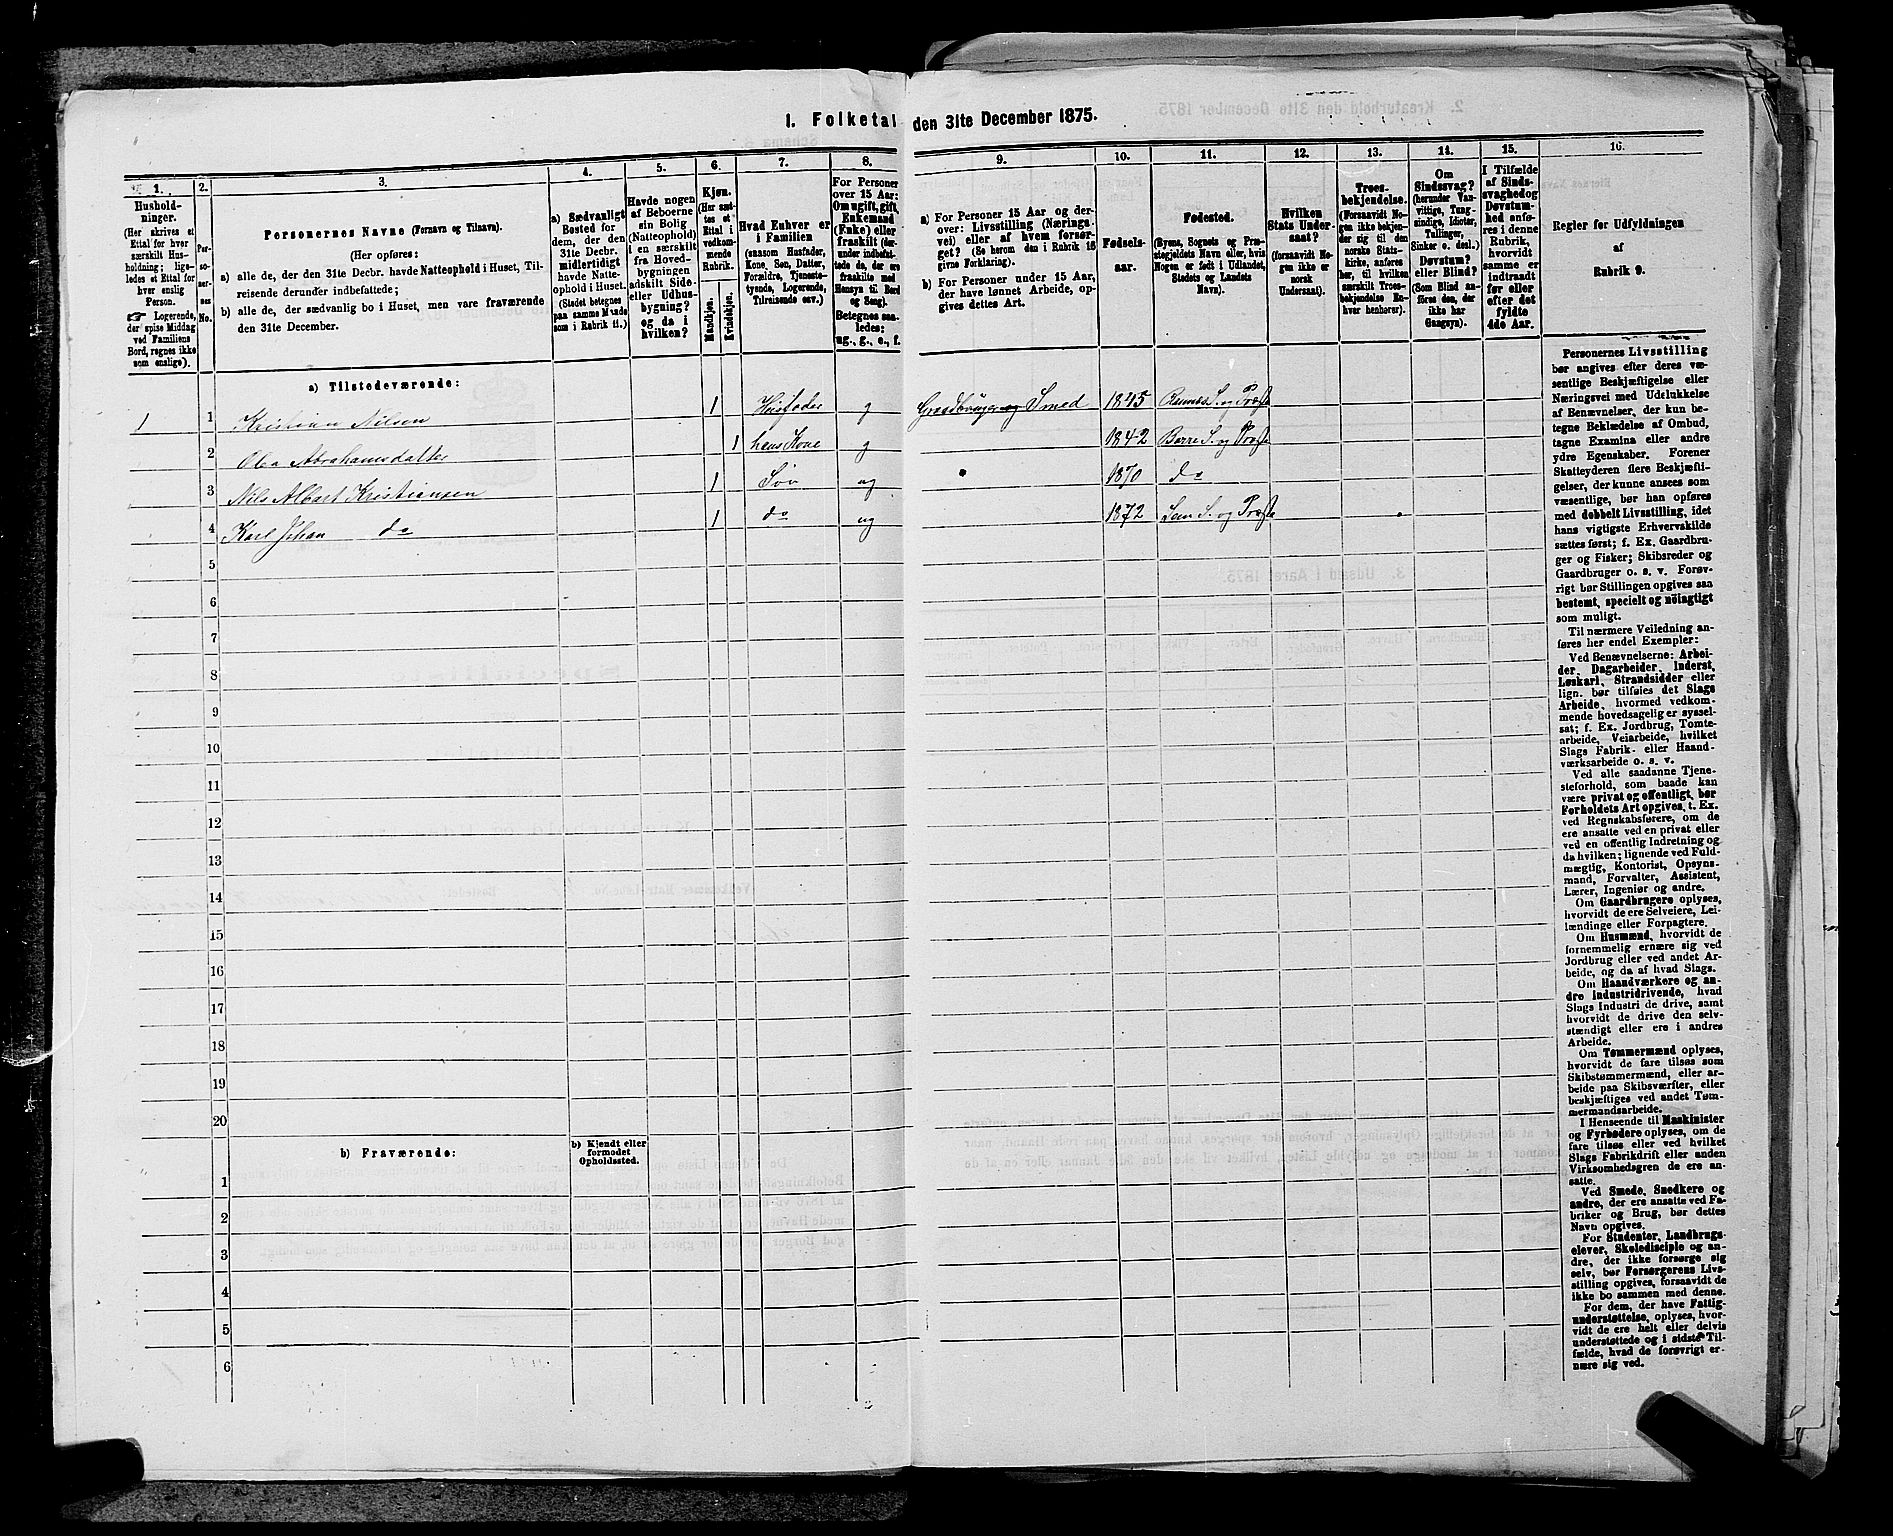 I. Folketal den 31te December 1875.
1. 2. 3. 4. 5. 6. 7. 8. 9. 10. 11. 12. 13. 14. 15. 16.
Hushold-
ninger.
(Her skrives et
Ettal for hver
særskilt Hus-
holdning; lige-
ledes et Ettal for
hver enslig
Person.
☞ Logerende,
der spise Middag
ved Familiens
Bord, regnes ikke
som enslige).
Per-
so-
ner-
nes
No.
Personernes Navne (Fornavn og Tilnavn).
(Her opføres:
a) alle de, der den 31te Decbr. havde Natteophold i Huset, Til-
reisende derunder indbefattede;
b) alle de, der sædvanlig bo i Huset, men vare fraværende
den 31te December.
a) Sædvanligt
Bosted for
dem, der den
31te Decbr.
midlertidigt
havde Natte-
ophold i Huset.
(Stedet betegnes
paa samme Maade
som i Rubrik 11.)
Havde nogen
af Beboerne
sin Bolig
(Natteophold)
i en særskilt
fra Hoved-
bygningen
adskilt Side-
eller Udhus-
bygning?
og da i
hvilken?
Kjøn.
(Her sæt-
tes et
Ettal i
vedkom-
mende
Rubrik.
Mandkjøn.
Kvindekjøn.
Hvad Enhver er
i Familien
(saasom Husfader,
Kone, Søn, Datter,
Forældre, Tjeneste-
tyende, Logerende,
Tilreisende osv.)
For Personer
over 15 Aar:
Om ugift, gift,
Enkemand
(Enke) eller
fraskilt (der-
under indbefat-
tede de, der ere
fraskilte med
Hensyn til Bord
og Seng).
Betegnes saa-
ledes:
ug., g., e., f.
a) For Personer 15 Aar og der-
over: Livsstilling (Nærings-
vei) eller af hvem forsør-
get? (Se herom den i Rubrik 16
givne Forklaring).
b) For Personer under 15 Aar,
der have lønnet Arbeide, op-
gives dettes Art.
Fødsels-
aar.
Fødested.
(Byens, Sognets og Præ-
stegjeldets Navn eller, hvis
Nogen er født i Udlandet,
Stedets og Landets
Navn).
Hvilken
Stats Under-
saat?
(forsaavidt No-
gen ikke er
norsk
Undersaat).
Troes-
bekjendelse.
(Forsaavidt No-
gen ikke bekjen-
der sig til den
norske Stats-
kirke, anføres
her, til hvilken
særskilt Troes-
bekjendelse En-
hver henhører).
Om
Sindssvag?
(herunder Van-
vittige, Tung-
sindige, Idioter,
Tullinger,
Sinker o. desl.)
Døvstum?
eller Blind?
(Som Blind an-
føres den, der
ikke har
Gangsyn).
I Tilfælde
af Sinds-
svaghed og
Døvstum-
hed anfø-
res i denne
Rubrik,
hvorvidt
samme er
indtraadt
før eller
efter det
fyldte
4de Aar.
Regler for Udfyldningen
af
Rubrik 9.
a) Tilstedeværende:
1 1 Kristian Nilsen 1 Husfader g Gaardbruger og Smed 1845 S. og Præst
2 Abrahamsdatter 1 hans Kone g 1842 Borre S. og Præst
3 Nils Albart Kristiansen 1 Søn ug 1870 do
4 Karl Johan do 1 do ug 1872 Sem S. og Præst
5
6
7
8
9
10
11
12
13
14
15
16
17
18
19
20
b) Fraværende:
b) Kjendt eller
formodet
Opholdssted.
1
2
3
4
5
6
Personernes Livsstilling
bør angives efter deres væ-
sentlige Beskjæftigelse eller
Næringsvei med Udelukkelse
af Benævnelser, der kun be-
tegne Beklædelse af Ombud,
tagne Examina eller andre
ydre Egenskaber. Forener
Skatteyderen flere Beskjæfti-
gelser, der kunne ansees som
væsentlige, bør han opføres
med dobbelt Livsstilling, idet
hans vigtigste Erhvervskilde
sættes først; f. Ex. Gaardbru-
ger og Fisker; Skibsreder og
Gaardbruger o. s. v. Forøv-
rigt bør Stillingen opgives saa
bestemt, specielt og nöiagtigt
som muligt.
Til nærmere Veiledning an-
føres her endel Exempler:
Ved Benævnelserne: Arbei-
der, Dagarbeider, Inderst,
Løskarl, Strandsidder eller
lign. bør tilføies det Slags
Arbeide, hvormed vedkom-
mende hovedsagelig er syssel-
sat; f. Ex. Jordbrug, Tomte-
arbeide, Veiarbeide, hvilket
Slags Fabrik- eller Haand-
værksarbeide o. s. v.
Ved alle saadanne Tjene-
steforhold, som baade kan
være privat og offentligt, bør
Forholdets Art opgives, t. Ex.
ved Regnskabsførere, om de
ere ansatte ved en privat eller
ved en offentlig Indretning og
da hvilken; lignende ved Fuld-
mægtig, Kontorist, Opsyns-
mand, Forvalter, Assistent,
Lærer, Ingeniør og andre.
Om Gaardbrugere oplyses,
hvorvidt de ere Selveiere, Lei-
lændinge eller Forpagtere.
Om Husmænd, hvorvidt de
fornemmelig ernære sig ved
Jordbrug eller ved andet Ar-
beide, og da af hvad Slags.
Om Haandværkere og an-
dre Industridrivende, hvad
Slags Industri de drive, samt
hvorvidt de drive den selv-
stændigt eller ere i andres
Arbeide.
Om Tømmermænd oplyses,
hvorvidt de fare tilsøs som
Skibstømmermænd, eller ar-
beide paa Skibsværfter, eller
beskjæftiges ved andet Tøm-
mermandsarbeide.
I Henseende til Maskinister
og Fyrbødere oplyses, om de
fare tilsøs eller ved hvilket
Slags Fabrikdrift eller anden
Virksomhedsgren de ere an-
satte.
Ved Smede, Snedkere og
andre, der ere ansatte ved Fa-
briker og Brug, bør dettes
Navn opgives.
For Studenter, Landbrugs-
elever, Skoledisciple og an-
dre, der ikke forsørge sig
selv, bør Forsørgerens Livs-
stilling opgives, forsaavidt de
ikke bo sammen med denne.
For dem, der have Fattig-
understøttelse, oplyses, hvor-
vidt de ere helt eller delvis
understøttede og i sidste Til-
fælde, hvad de forøvrigt er-
nære sig ved.